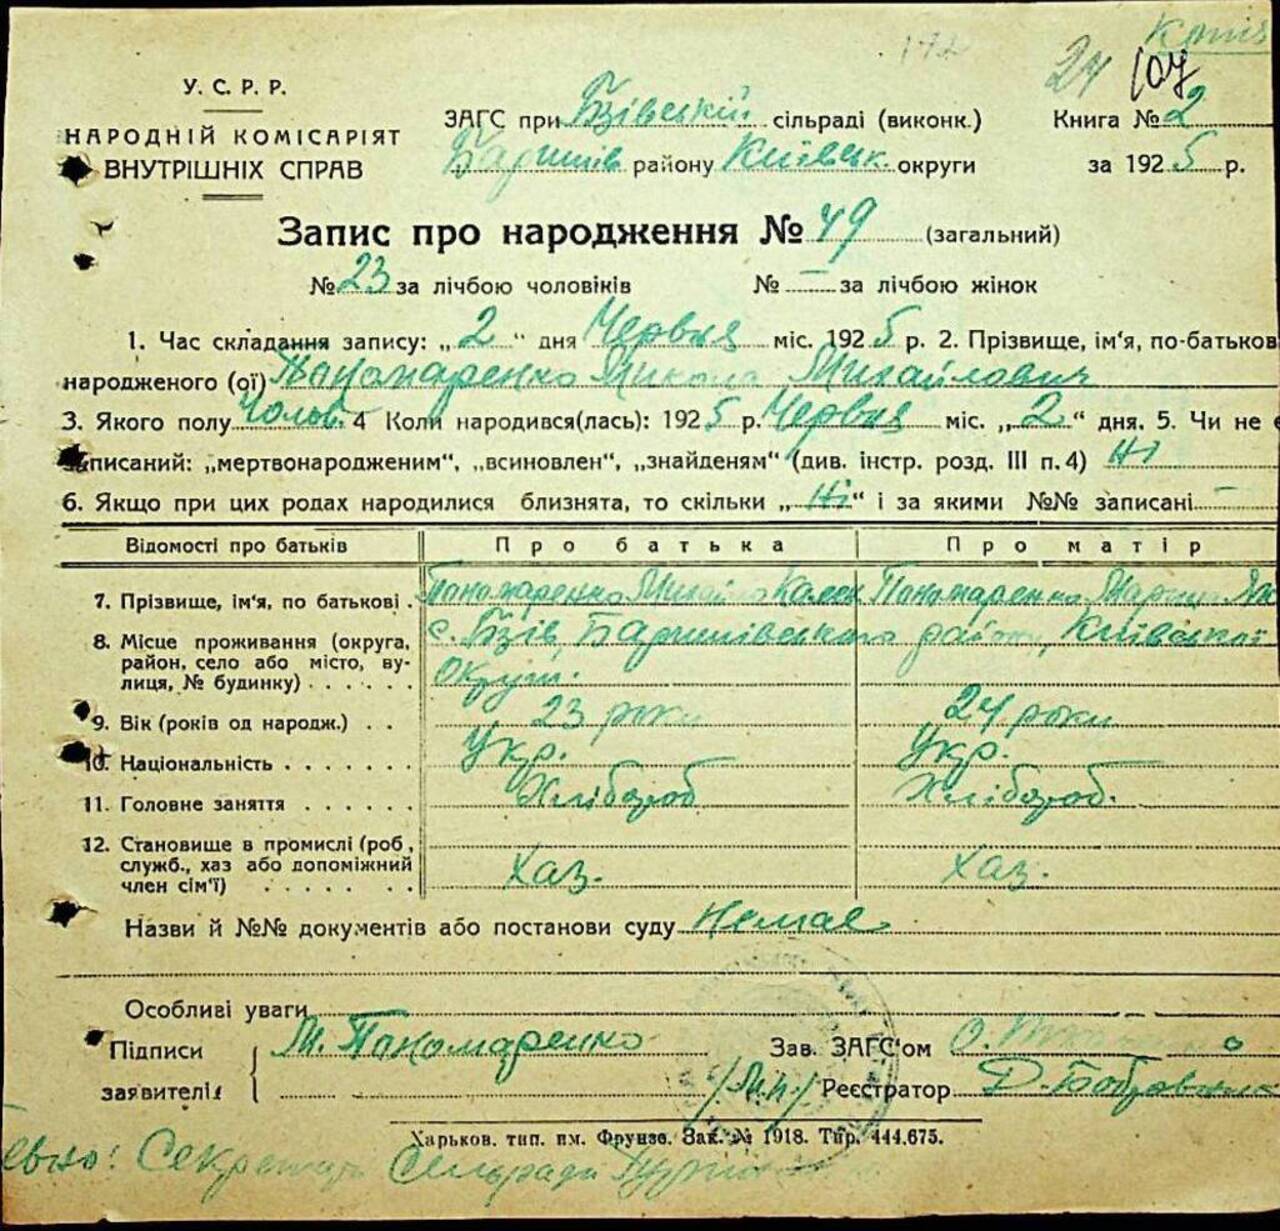 Копія
172 24 107
У. С. Р. Р.
НАРОДНІЙ КОМІСАРІЯТ
ВНУТРІШНІХ СПРАВ
ЗАГС при Бзівській сільраді (виконк.) Книга № 2
Баришів району Київськ. округи за 1925 р.
Запис про народження № 49 (загальний)
№ 23 за лічбою чоловіків № — за лічбою жінок
1. Час складання запису: „2“ дня Червня міс. 1925 р. 2. Прізвище, ім'я, по-батьков
народженого (ої) Пономаренко Микола Михайлович
3. Якого полу Чолов. 4 Коли народився(лась): 1925 р. Червня міс. „2“ дня. 5. Чи не є
записаний: „мертвонародженим“, „всиновлен“, „знайденям“ (див. інстр. розд. III п. 4) Ні
6. Якщо при цих родах народилися близнята, то скільки „Ні“ і за якими №№ записані —
Відомості про батьків Про батька Про матір
7. Прізвище, ім'я, по батькові . Пономаренко Михайло Пономаренко Мария
8. Місце проживання (округа, с. Бзів, Баришівського району, Київської
район, село або місто, ву-
лиця, № будинку) . . . . . . Округи.
9. Вік (років од народж.) . . 23 роки 24 роки
10. Національність . . . . . . . Укр. Укр.
11. Головне заняття . . . . . . Хлібороб Хлібороб.
12. Становище в промислі (роб.,
служб., хаз або допоміжний
член сім'ї) . . . . . . . . Хаз. Хаз.
Назви й №№ документів або постанови суду Немає
Особливі уваги
Підписи М. Пономаренко Зав. ЗАГС'ом О.
заявителів /М.п./ Реєстратор Д.
Харьков. тип. им. Фрунзе. Зак. № 1918. Тир. 444.675.
евно: Секретар Сельради